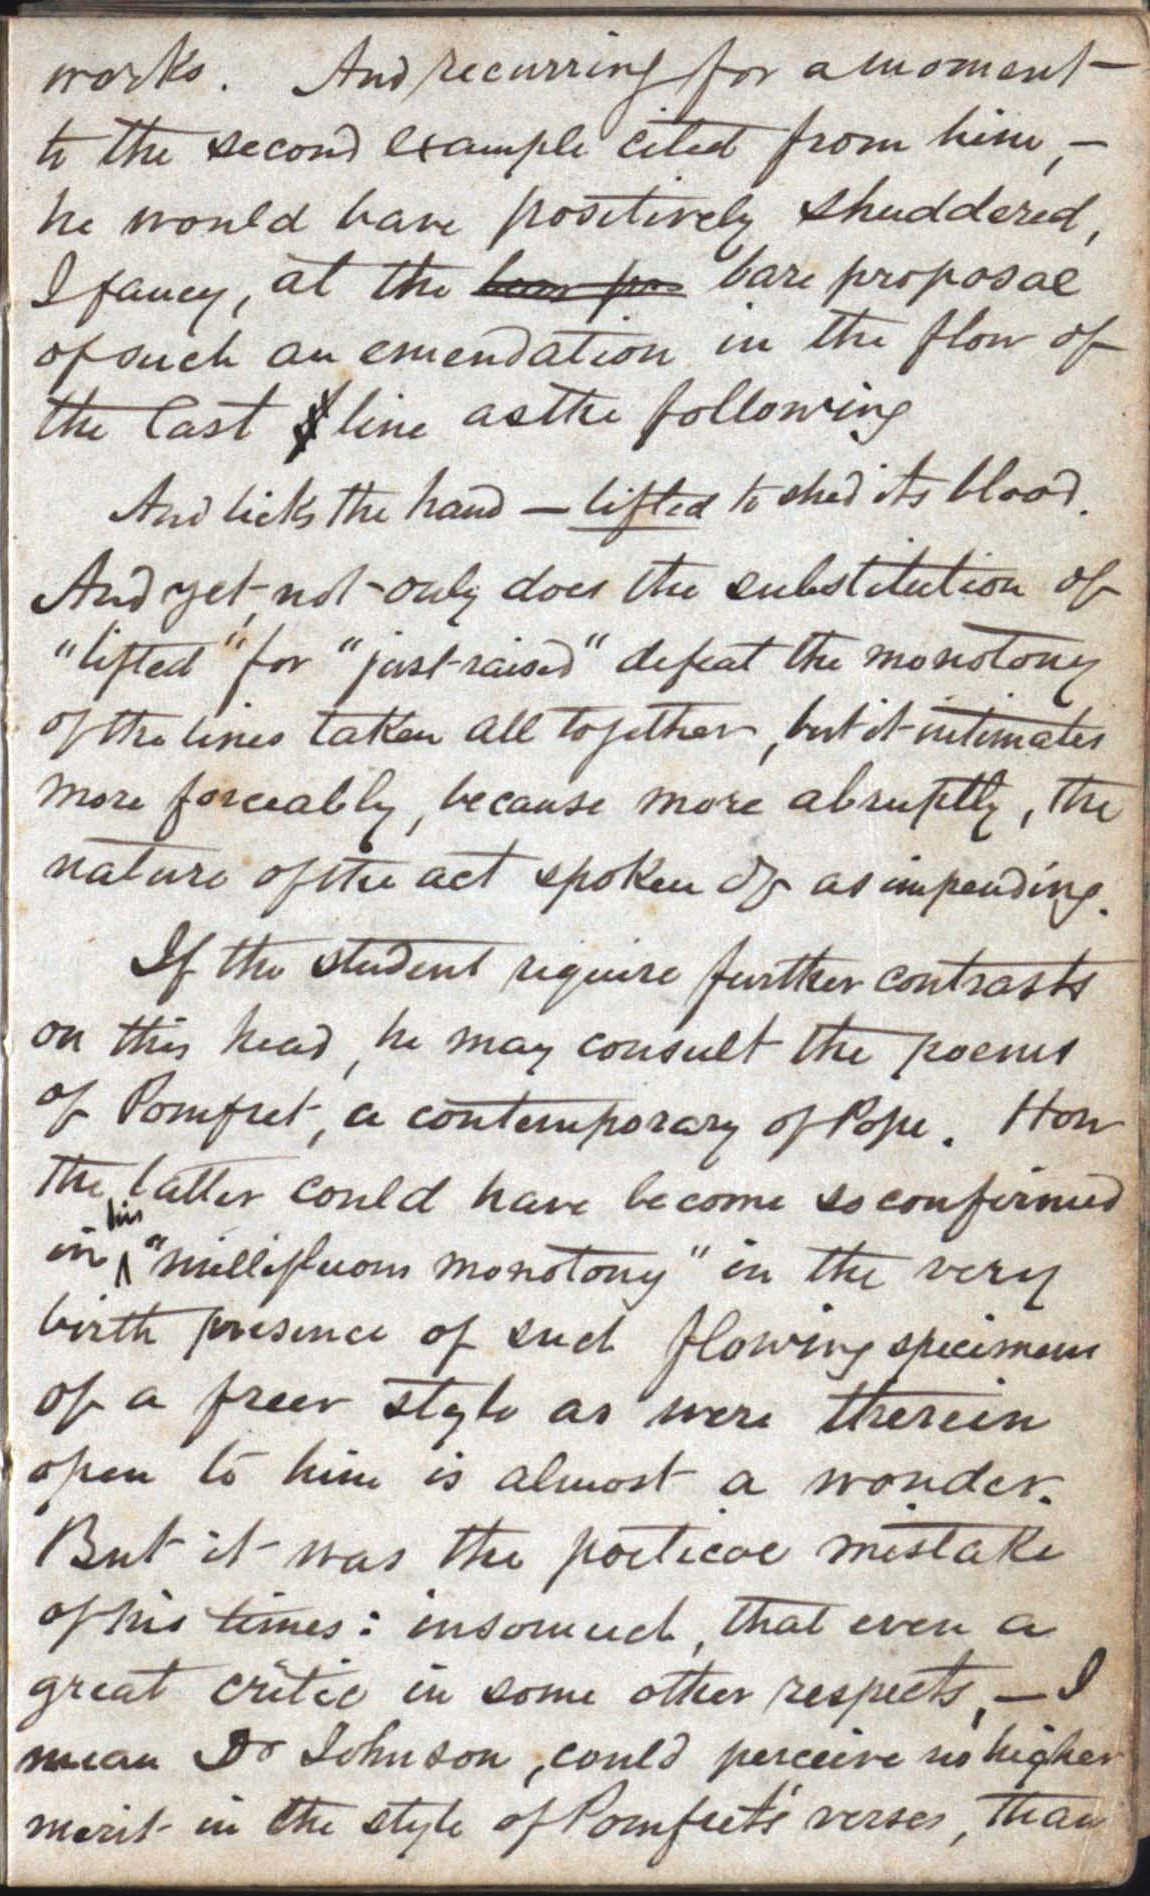 works. And recurring for a moment
to the second example cited from him, –
he would have positively shuddered,
I fancy, at the bare proposal
of such an emendation in the flow of
the last line as the following
And licks the hand – lifted to shed its blood.
And yet, not only does the substitution of
"lifted" for "just raised" defeat the monotony
of the lines taken all together, but it intimates
more forceably, because more abruptly, the
nature of the act spoken of as impending.
If the student require further contrasts
on this head, he may consult the poems
of Pomfret, a contemporary of Pope. How
the latter could have become so confirmed
in his "mellifluous monotony" in the very
birth presence of such flowing specimens
of a freer style as were therein
open to him is almost a wonder.
But it was the poetical mistake
of his times: insomuch, that even a
great critic in some other respects, – I
mean Dr Johnson, could perceive no higher
merit in the style of Pomfret's verses, than